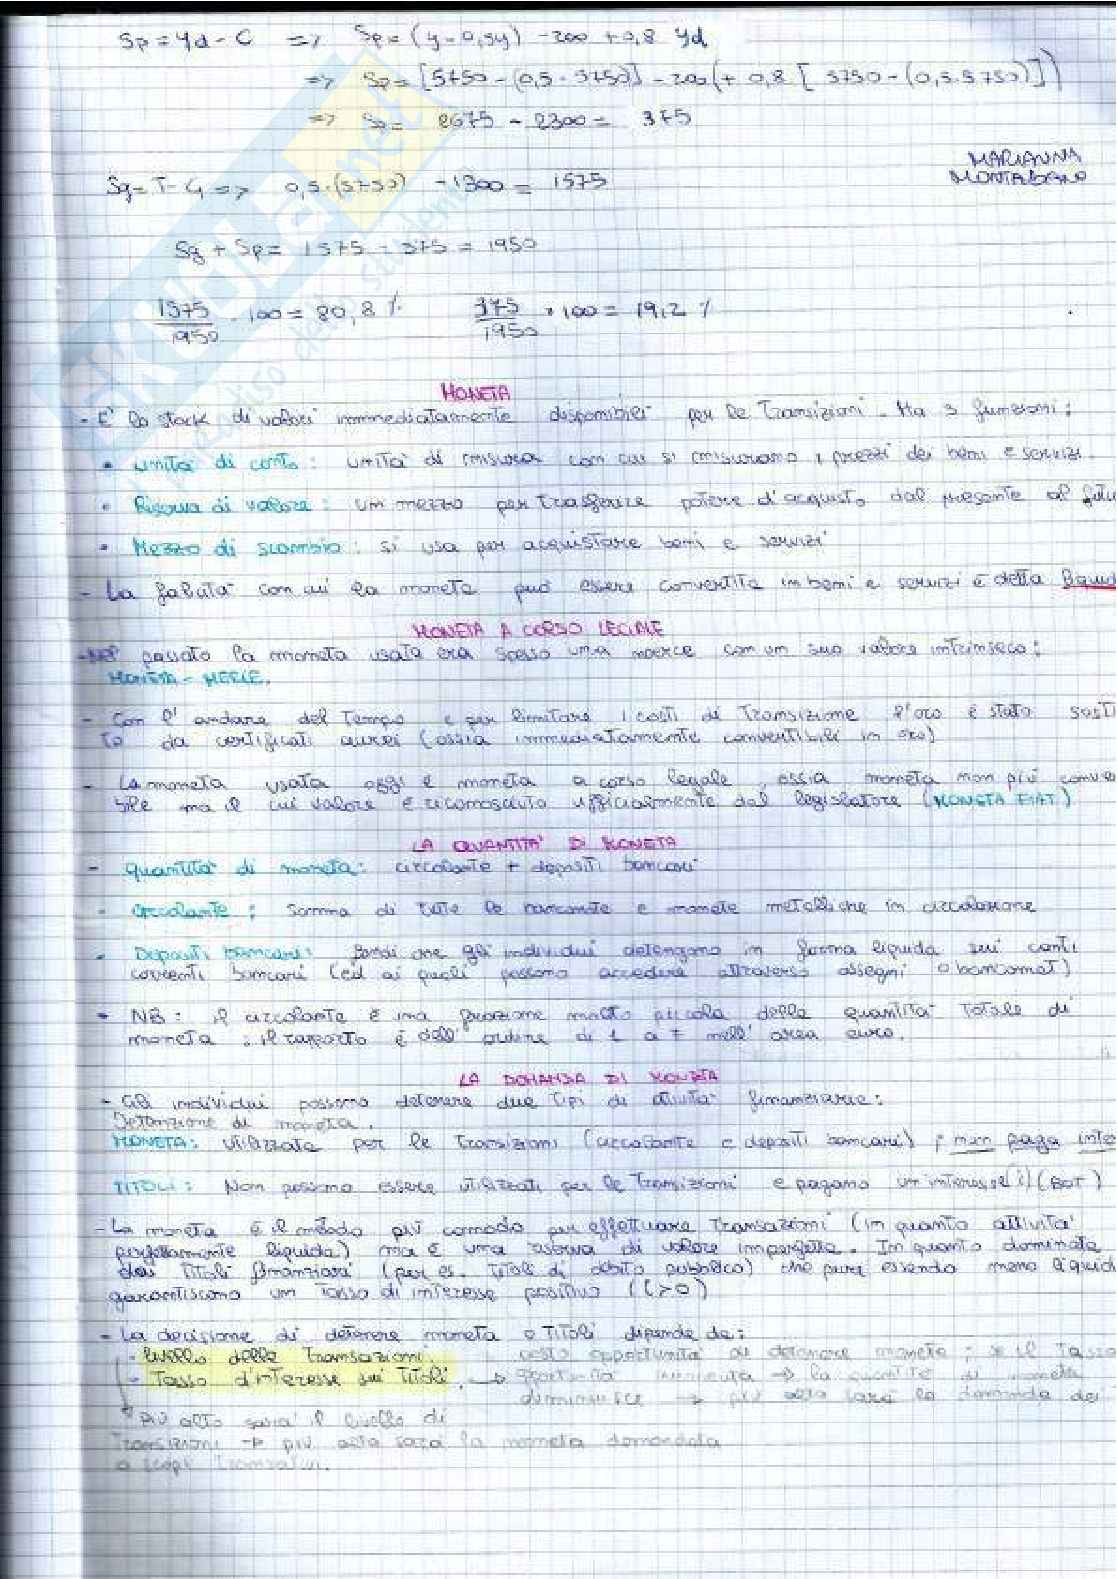 Sp = Yd - C => Sp = (y - 0,5y) - 200 + 0,8 Yd
=> Sp = [5750 - (0,5 · 5750)] - 200 (+ 0,8 [ 5750 - (0,5 · 5750)])
=> Sp = 2675 - 2300 = 375
MARIANNA
MONTALBANO
Sg = T - G => 0,5 · (5750) - 1300 = 1575
Sg + Sp = 1575 - 375 = 1950
1575/1950 · 100 = 80,8 % 375/1950 · 100 = 19,2 %
MONETA
- E' lo stock di valori immediatamente disponibili per le Transizioni. Ha 3 funzioni:
• unità di conto: unità di misura con cui si misurano i prezzi dei beni e servizi.
• Riserva di valore: un mezzo per trasferire potere d'acquisto dal presente al futu
• Mezzo di scambio: si usa per acquistare beni e servizi
- La facilità con cui la moneta può essere convertita in beni e servizi è detta liquid
MONETA A CORSO LEGALE
- Nel passato la moneta usata era spesso una merce con un suo valore intrinseco:
MONETA - MERCE.
- Con l'andare del Tempo e per limitare i costi di Transizione l'oro è stato sosti
to da certificati aurei (ossia immediatamente convertibili in oro)
- La moneta usata oggi è moneta a corso legale, ossia moneta non più conver
bile ma il cui valore è riconosciuto ufficialmente dal legislatore (MONETA FIAT).
LA QUANTITA' DI MONETA
- Quantità di moneta: circolante + depositi bancari
- circolante: Somma di tutte le banconote e monete metalliche in circolazione
- Depositi bancari: fondi che gli individui detengono in forma liquida sui conti
correnti bancari (ed ai quali possono accedere attraverso assegni o bancomat)
- NB: il circolante è una frazione molto piccola della quantità totale di
moneta: il rapporto è dell'ordine di 1 a 7 nell'area euro.
LA DOMANDA DI MONETA
- Gli individui possono detenere due tipi di attività finanziarie:
Detenzione di moneta.
MONETA: Utilizzata per le transizioni (circolante e depositi bancari); non paga inte
TITOLI: Non possono essere utilizzati per le Transizioni e pagano un interesse (i) (BOT)
- La moneta è il metodo più comodo per effettuare Transazioni (in quanto attività
perfettamente liquida) ma è una riserva di valore imperfetta. In quanto dominata
dai Titoli finanziari (per es. Titoli di debito pubblico) che pure essendo meno liquid
garantiscono un Tasso di interesse positivo (i>0)
- La decisione di detenere moneta o Titoli dipende da:
- livello delle Transazioni. costo opportunità di detenere moneta; se il Tasso
- Tasso d'interesse sui Titoli. → aumenta → la quantità di moneta
diminuisce → più alta sarà la domanda dei
più alto sarà il livello di
Transizioni → più alta sarà la moneta domandata
a scopi